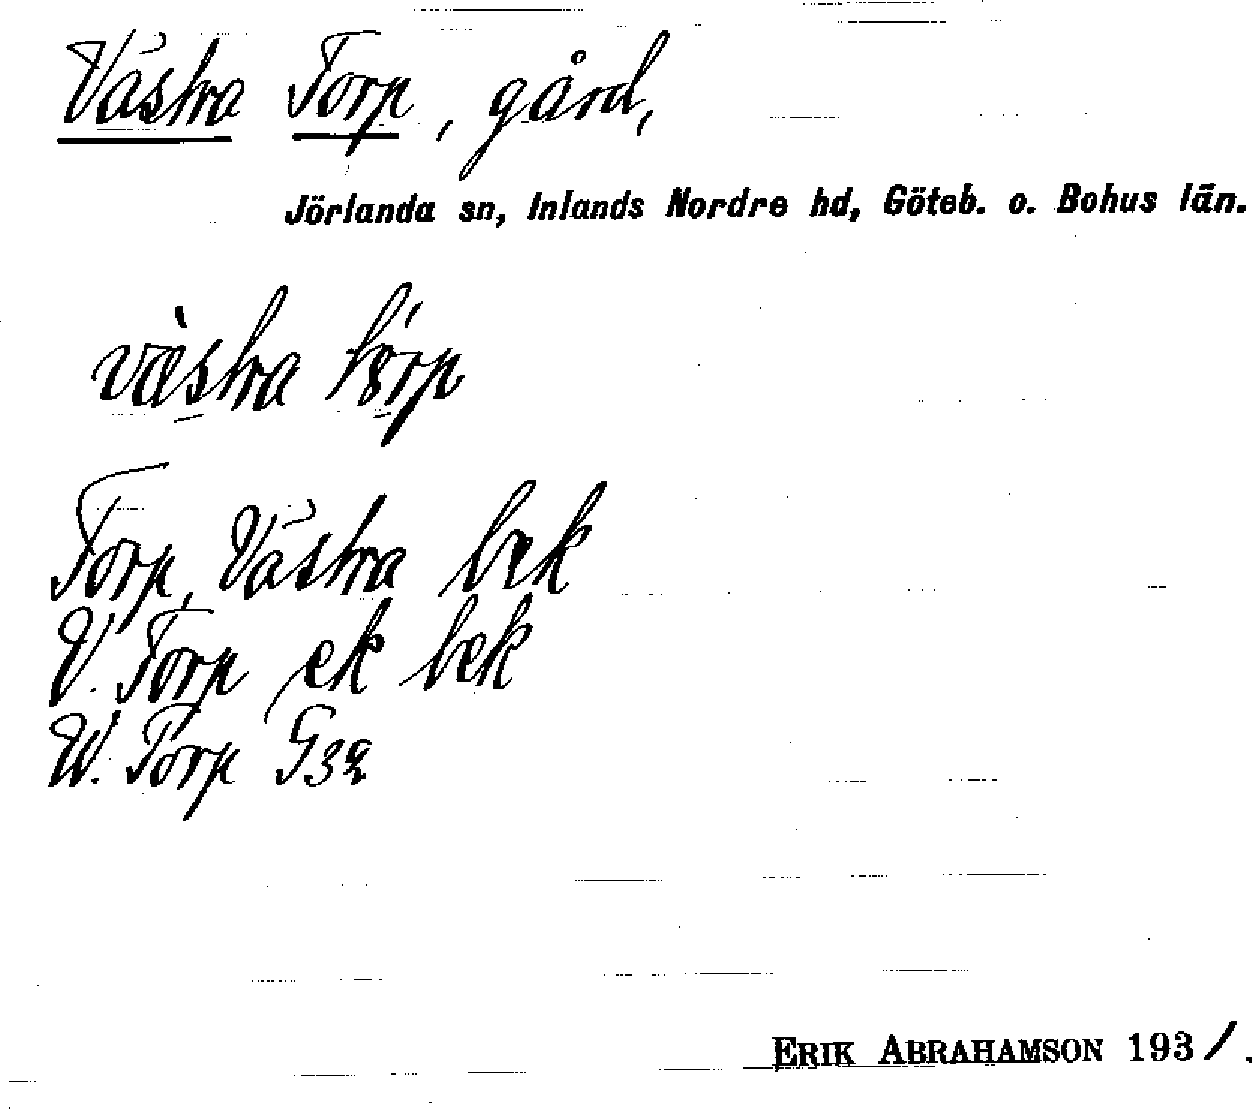 Västra Torp, gård,
Jörlanda sn, Inlands Nordre hd, Göteb. o. Bohus län.
væ̀stra tɤ́rp
Torp, Västra bek
V. Torp ek bek
W. Torp G32
ERIK ABRAHAMSON 1931.